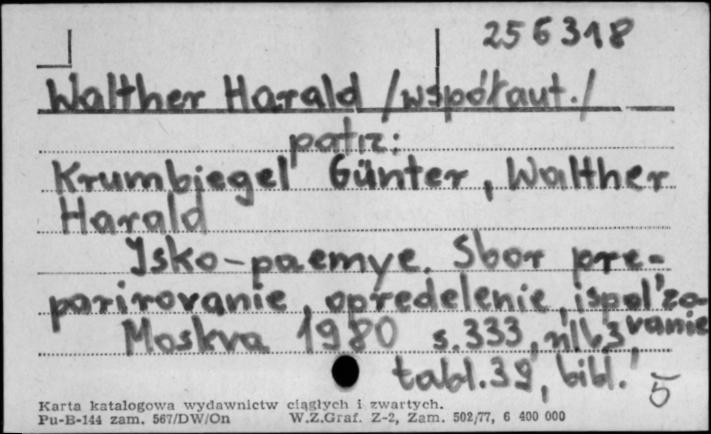 256318
Walther Harald /współaut./
patrz:
Krumbiegel Günter, Walther
Harald
Isko-paemye. Sbor pre-
parirovanie, opredelenie, ispol'zo-
vanie
Moskva 1980 s.333,
tabl.39, bibl.
5
Karta katalogowa wydawnictw ciągłych i zwartych.
Pu-B-144 zam. 567/DW/On W.Z.Graf. Z-2, Zam. 502/77, 6 400 000